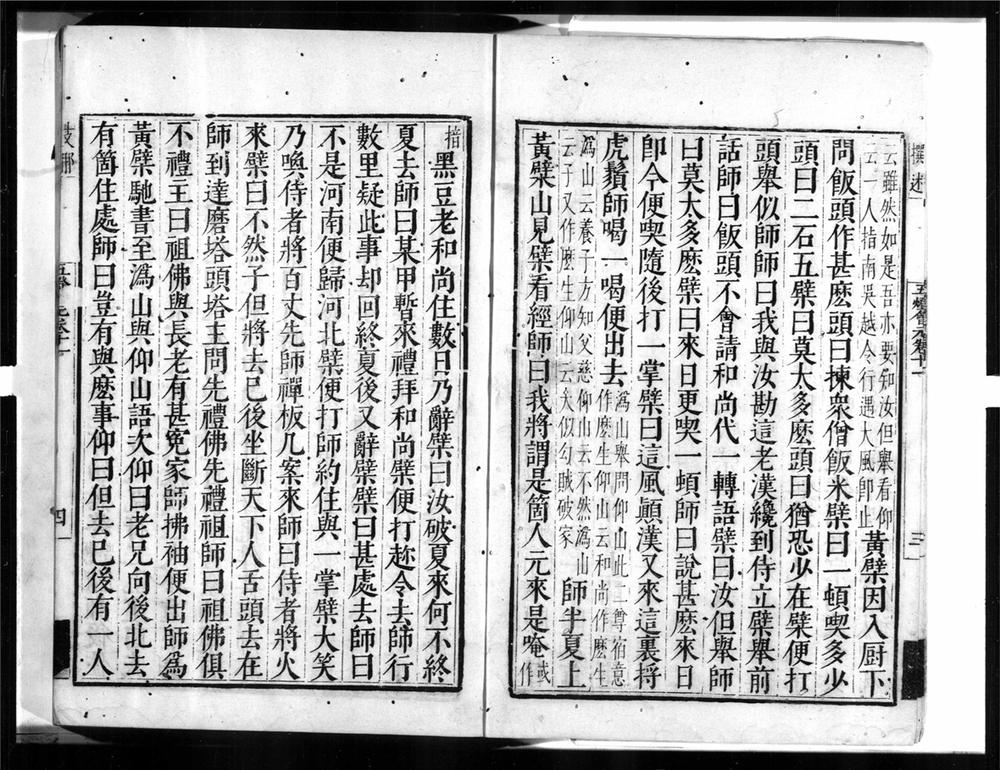 撰述
五燈會元卷十一
三
云雖然如是吾亦要知汝但舉看仰
云一人指南吳越令行遇大風卽止
黃檗因入厨下
問飯頭作甚麽頭曰揀衆僧飯米檗曰一頓喫多少
頭曰二石五檗曰莫太多麽頭曰猶恐少在檗便打
頭舉似師師曰我與汝勘這老漢纔到侍立檗舉前
話師曰飯頭不會請和尚代一轉語檗曰汝但舉師
曰莫太多麽檗曰來日更喫一頓師曰說甚麽來日
卽今便喫隨後打一掌檗曰這風顛漢又來這裏捋
虎鬚師喝一喝便出去
溈山舉問仰山此二尊宿意
作麽生仰山云和尚作麽生
溈山云養子方知父慈仰山云不然溈山
云子又作麽生仰山云大似勾賊破家
師半夏上
黃檗山見檗看經師曰我將謂是箇人元來是唵
或
作
揞
黑豆老和尚住數日乃辭檗曰汝破夏來何不終
夏去師曰某甲暫來禮拜和尚檗便打趂令去師行
數里疑此事却回終夏後又辭檗檗曰甚處去師曰
不是河南便歸河北檗便打師約住與一掌檗大笑
乃喚侍者將百丈先師禪板几案來師曰侍者將火
來檗曰不然子但將去已後坐斷天下人舌頭去在
師到達磨塔頭塔主問先禮佛先禮祖師曰祖佛俱
不禮主曰祖佛與長老有甚冤家師拂袖便出師為
黃檗馳書至溈山與仰山語次仰曰老兄向後北去
有箇住處師曰豈有與麽事仰曰但去已後有一人
支那
四